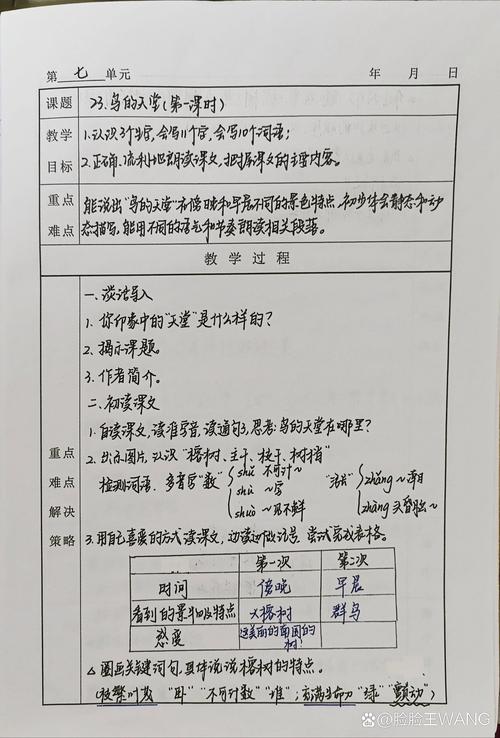 第 七 单元 年 月 日
课题 23.鸟的天堂(第一课时)
教学目标
1.认识3个生字,会写11个字,会写10个词语;
2.正确、流利地朗读课文,把握课文的主要内容。
重点难点
能说出"鸟的天堂"在傍晚和早晨不同的景色特点,初步体会静态和动
态描写,能用不同的语气和节奏朗读相关段落。
教学过程
重点难点解决策略
一.谈话导入
1.你印象中的"天堂"是什么样的?
2.揭示课题。
3.作者简介。
二.初读课文
1.自读课文,读准字音,读通句子,思考:鸟的天堂在哪里?
2.出示图片,认识"榕树、主干、枝干、树梢"
检测词语.多音字"数" shǔ 不可计~
shù ~字
shuò ~见不鲜
zhǎng ~
zhàng 头昏脑~
3.用自己喜爱的方式读课文,边读边做记号,尝试完成表格。
第一次 第二次
时间 傍晚 早晨
看到的景 特点 大榕树 群鸟
感受 这美丽的南国的
树!
△圈画关键词句,具体说说榕树的特点。
(枝繁叶茂 "卧" "不可计数" "堆";充满生命力 "绿" "颤动")
@脸脸王WANG